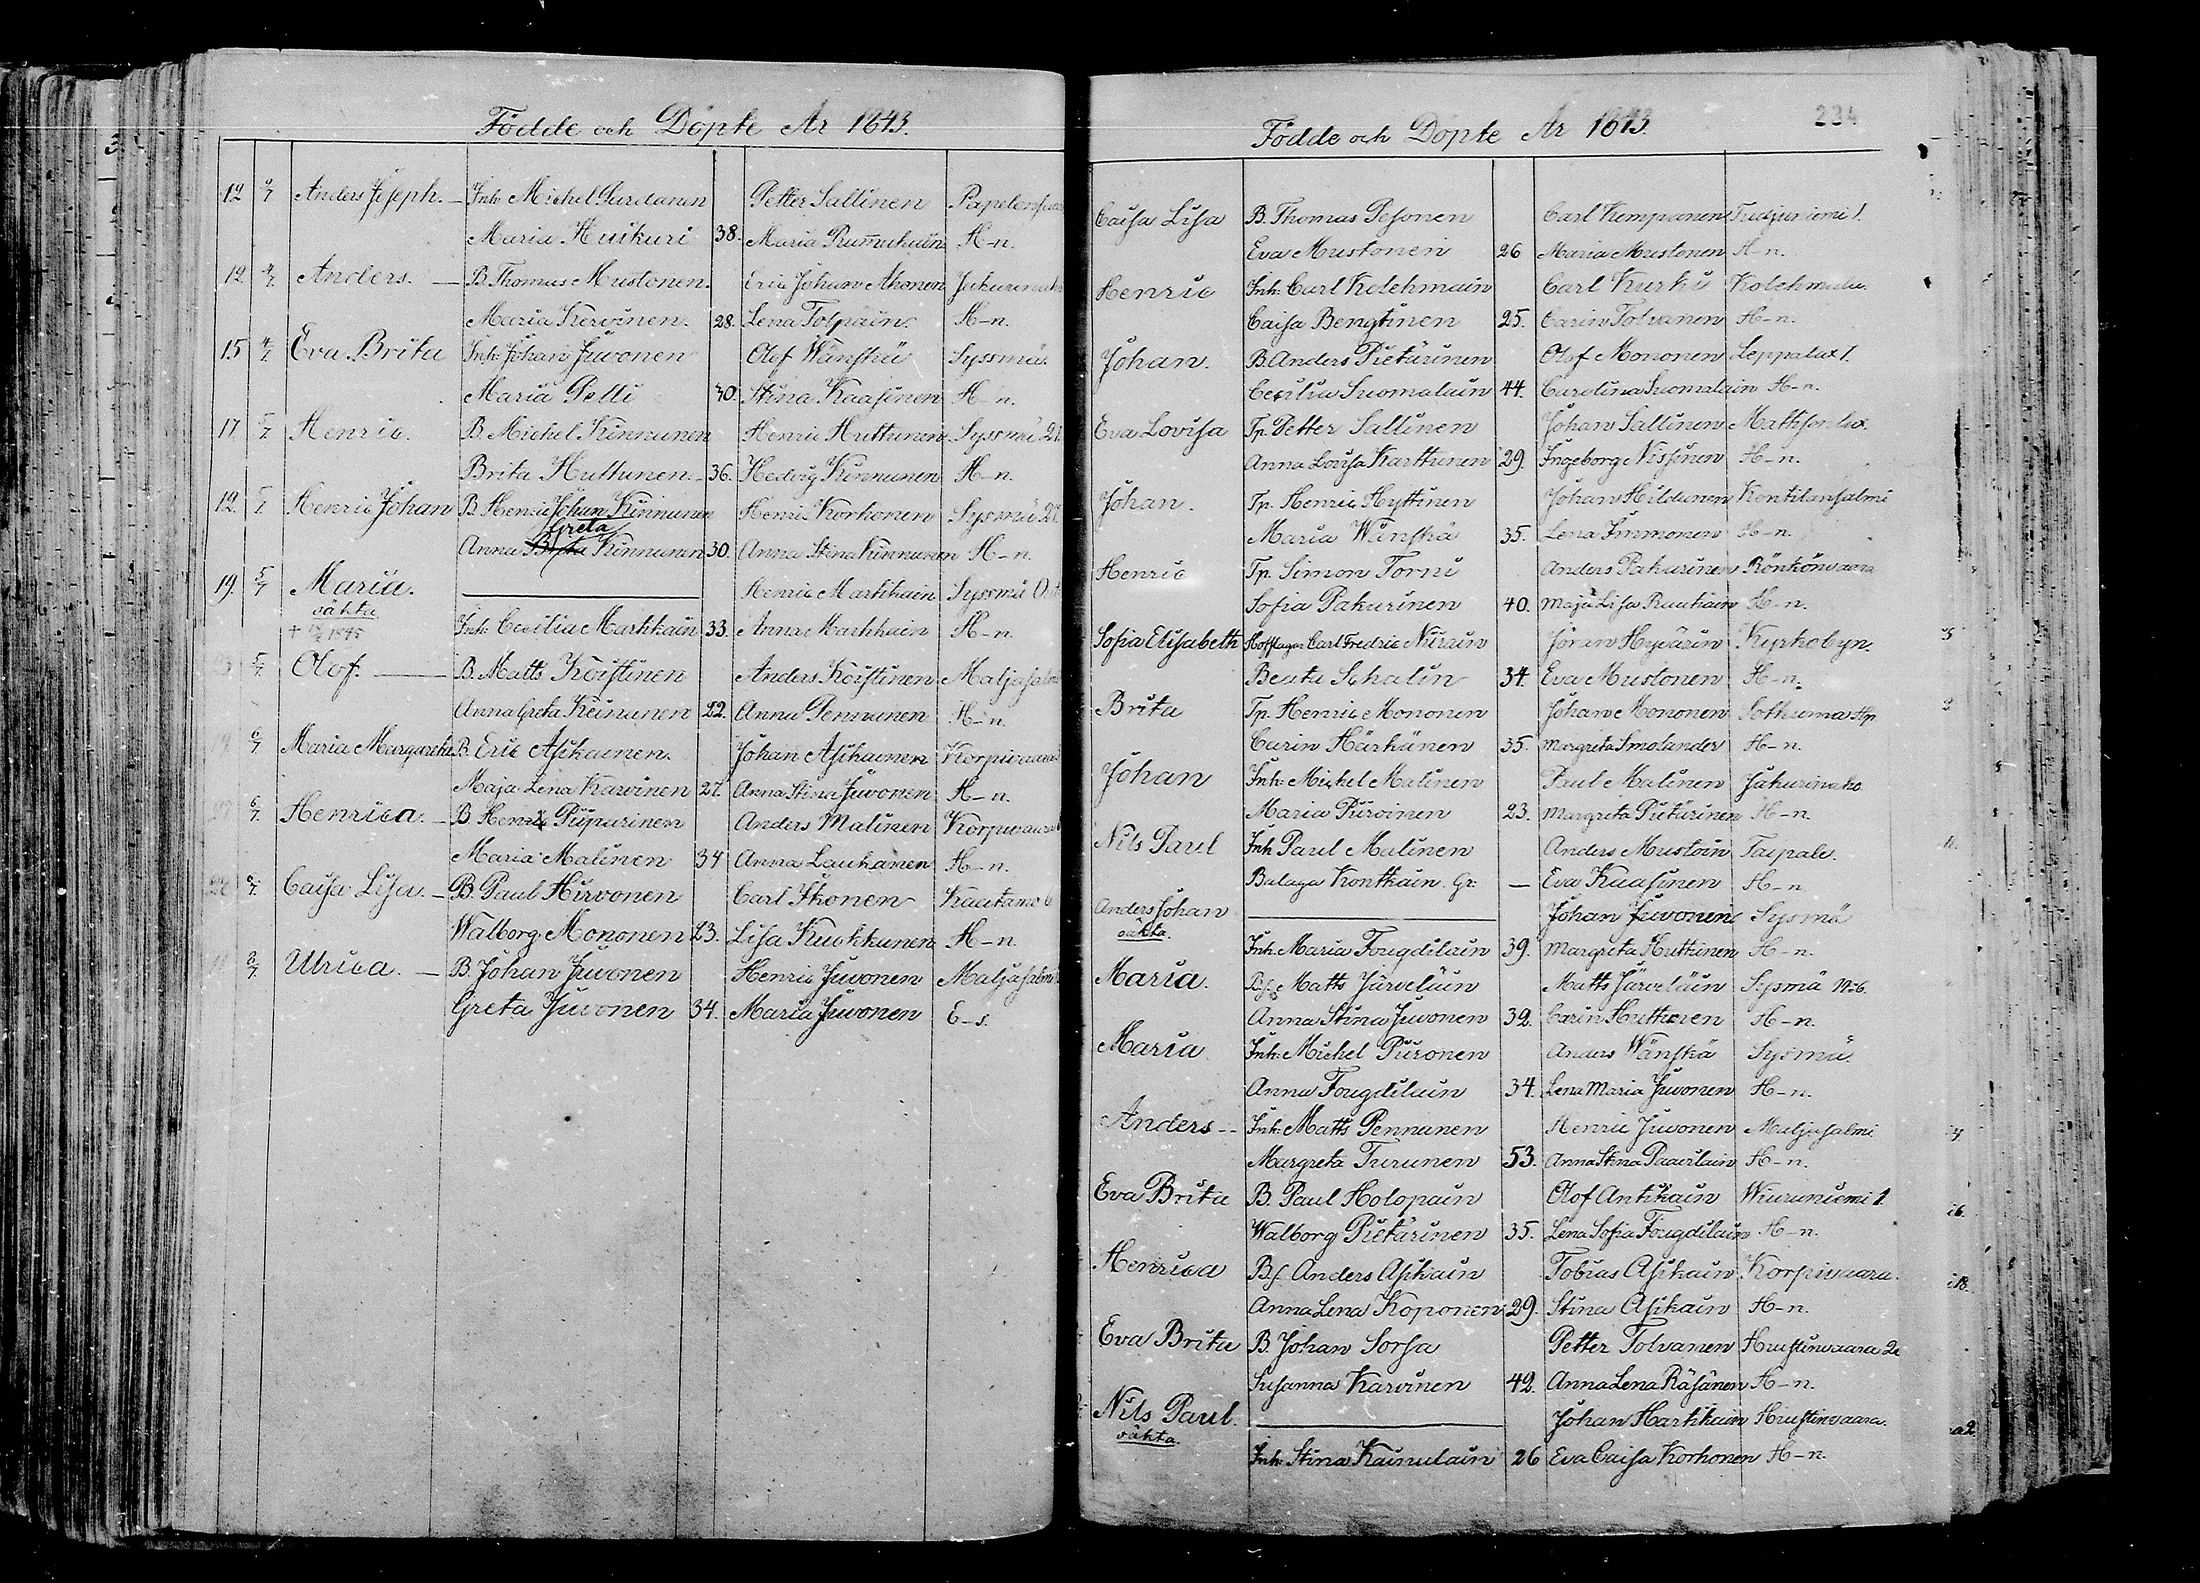 Födde och Döpte År 1843.
12 Anders Joseph. Inh. Michel Turdanen Petter Sallinen
Maria Huikuri 38. Maria H-n.
12 4/7 Anders. B. Thomas Mustonen. Eric Johan Ahonen
Maria Kervinen. 28. Lena Tolpain. H-n.
15 4/7 Eva Brita Inh. Johan Juvonen Olof Wänskä Syssmä.
Maria Pelli 30. Stina Kaasinen H-n.
17 5/7 Henric. B. Michel Kinnunen Henric Huttunen Syssmä 21.
Brita Huttunen. 36. Hedvig Kinnunen H-n.
12 5/7 Henric Johan B. Henric Johan Kinnunen Henric Korhonen Sysmä 27.
Greta
Anna Brita Kinnunen 30. Anna Stina Kinnunen H-n.
19. 5/7 Maria. Henric Markkain Syssmä
oäkta
Inh. Cecilia Markkain 33. Anna Markkain H-n.
5/7 Olof. B. Matts Koistinen Anders Koistinen
Anna Greta Keinänen 22. Anna Pennanen H-n.
6/7 Maria Margareta B. Eric Asikainen. Johan Asikainen Korpivaara
Maja Lena Karvinen 27. Anna Stina Juvonen H-n.
6/7 Henrica. B. Henric Piiparinen Anders Malinen Korpivaara
Maria Malinen 34 Anna Laukanen H-n.
Caisa Lisa. B. Paul Hirvonen Carl Ikonen Kaatamo 6
Walborg Mononen 23. Lisa Kuokkanen H-n.
8/7 Ulrica. B. Johan Juvonen Henric Juvonen Maljasalmi
Greta Juvonen 34. Maria Juvonen E-s.
Födde och Döpte År 1843.
234
Caisa Lisa B. Thomas Pesonen Carl Kumpanen
Eva Mustonen 26 Maria Mustonen H-n.
Henric Inh. Carl Kolehmain Carl Kurki
Caisa Bengtinen 25. Carin Tolvanen H-n.
Johan. B. Anders Pietarinen Olof Mononen Leppälax 1.
Cecilia Suomalain 44. Carolina Suomalain H-n.
Eva Lovisa Tp. Petter Sallinen Johan Sallinen
Anna Lovisa Karttunen 29. Ingeborg Nissinen H-n.
Johan. Tp. Henric Hyttinen Johan Hildunen Kontilansalmi
Maria Wänskä 35. Lena Immonen H-n.
Henric Tp. Simon Torni Anders Pakarinen Rönkönvaara
Sofia Pakarinen 40. Maja Lisa Ruutiain H-n.
Sofia Elisabeth Carl Fredric Niirain Jöran Hyvärin Kyrkobyn.
Beata Schalin 34. Eva Mustonen H-n.
Brita Tp. Henric Mononen Johan Mononen Sotkuma
Carin Härkänen 35. Margreta Smolander H-n.
Johan Inh. Michel Malinen Paul Malinen
Maria Piiroinen 23. Margreta Pietarinen H-n.
Nils Paul Inh. Paul Malinen Anders Mustoin Taipale.
Balaga Kontkain. Gr. — Eva Kaasinen H-n
Anders Johan Johan Juvonen Sysmä
oäkta.
Inh. Maria Fougdilain 39. Margreta Huttinen H-n.
Maria. Matts Järveläin Matts Järveläin Sysmä
Anna Stina Juvonen 32. Carin Huttunen H-n.
Maria Inh. Michel Piironen Anders Wänskä Sysmä.
Anna Fougdilain 34. Lena Maria Juvonen H-n.
Anders Inh. Matts Pennanen Henric Juvonen Maljasalmi
Margreta Turunen 53. Anna Stina Paavilain H-n.
Eva Brita B. Paul Holopain Olof Antikain Wiiruniemi 1.
Walborg Pietarinen 35. Lena Sofia Fougdilain H-n.
Henrica Bs. Anders Asikain Tobias Asikain Korpivaara.
Anna Lena Koponen 29. Stina Asikain H-n.
Eva Brita B. Johan Sorsa Petter Tolvanen Haustinvaara 2
Susanna Karvinen 42. Anna Lena Räsänen H-n.
Nils Paul. Johan Harkkain Haustinvaara.
oäkta.
Inh. Stina Kainulain 26 Eva Caisa Korhonen H-n.